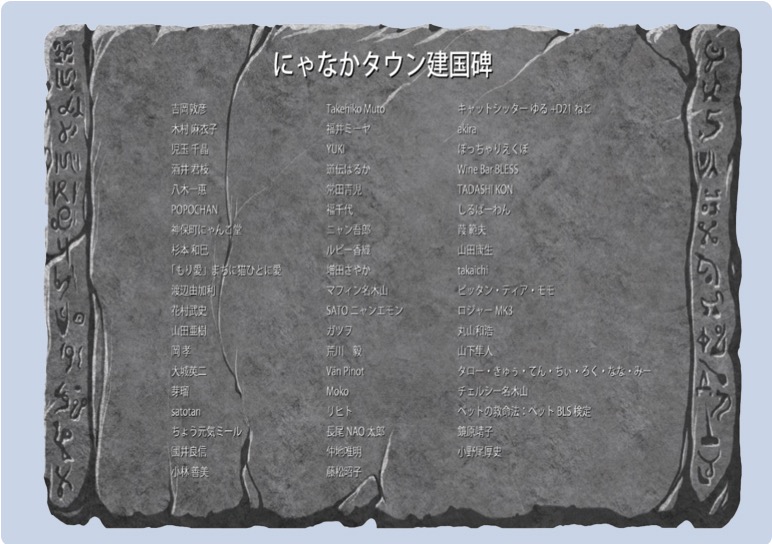 にゃなかタウン建国碑
吉岡敦彦
木村 麻衣子
児玉 千晶
酒井 君枝
八木一恵
POPOCHAN
神保町にゃんこ堂
杉本 和巳
「もり愛」まちに猫ひとに愛
渡辺由加利
花村武史
山田亜樹
岡 孝
大城英二
芽瑠
satotan
ちょう元気ミール
國井良信
小林 善美
Takehiko Muto
福井ミーヤ
YUKI
はるか
常田青児
福千代
ニャン吾郎
ルビー香織
増田さやか
マフィン名木山
SATO ニャンエモン
ガツヲ
荒川 毅
Van Pinot
Moko
リヒト
長尾 NAO 太郎
仲地唯明
藤松昭子
キャットシッター ゆる +D21 ねこ
akira
ぽっちゃりえくぼ
Wine Bar BLESS
TADASHI KON
しるばーわん
霞 範夫
山田康生
takaichi
ピッタン・ティア・モモ
ロジャー MK3
丸山和浩
山下隼人
タロー・きゅぅ・てん・ちぃ・ろく・なな・みー
チェルシー名木山
ペットの救命法：ペット BLS 検定
鏡原靖子
小野尾厚史